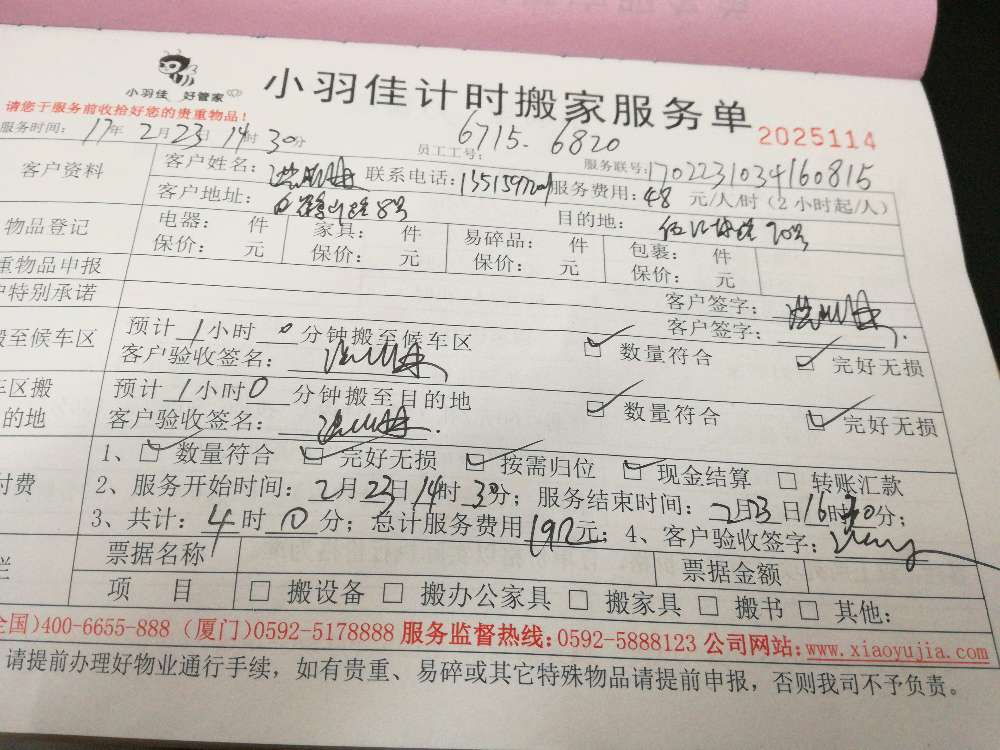 小羽佳 好管家
小羽佳计时搬家服务单
2025114
请您于服务前收拾好您的贵重物品!
服务时间: 17年 2月 23日 14时 30分
员工工号: 6715. 6820
服务联号: 1702231034160815
客户资料
客户姓名: 联系电话: 服务费用: 48 元/人/时 (2小时起/人)
客户地址: 8号 目的地: 90号
物品登记
电器: 件 家具: 件 易碎品: 件 包裹: 件
保价: 元 保价: 元 保价: 元 保价: 元
重物品申报
客户签字:
特别承诺
客户签字:
至候车区
预计 1 小时 0 分钟搬至候车区
数量符合 完好无损
客户验收签名:
区搬
的地
预计 1 小时 0 分钟搬至目的地
数量符合 完好无损
客户验收签名:
付费
1、 数量符合 完好无损 按需归位 现金结算 转账汇款
2、服务开始时间: 2月 23日 14时 30分; 服务结束时间: 2月 23日 16时 30分;
3、共计: 4 时 0 分; 总计服务费用 192 元; 4、客户验收签字:
票据名称 票据金额
项 目 搬设备 搬办公家具 搬家具 搬书 其他:
全国)400-6655-888 (厦门)0592-5178888 服务监督热线:0592-5888123 公司网站:www.xiaoyujia.com
请提前办理好物业通行手续，如有贵重、易碎或其它特殊物品请提前申报，否则我司不予负责。